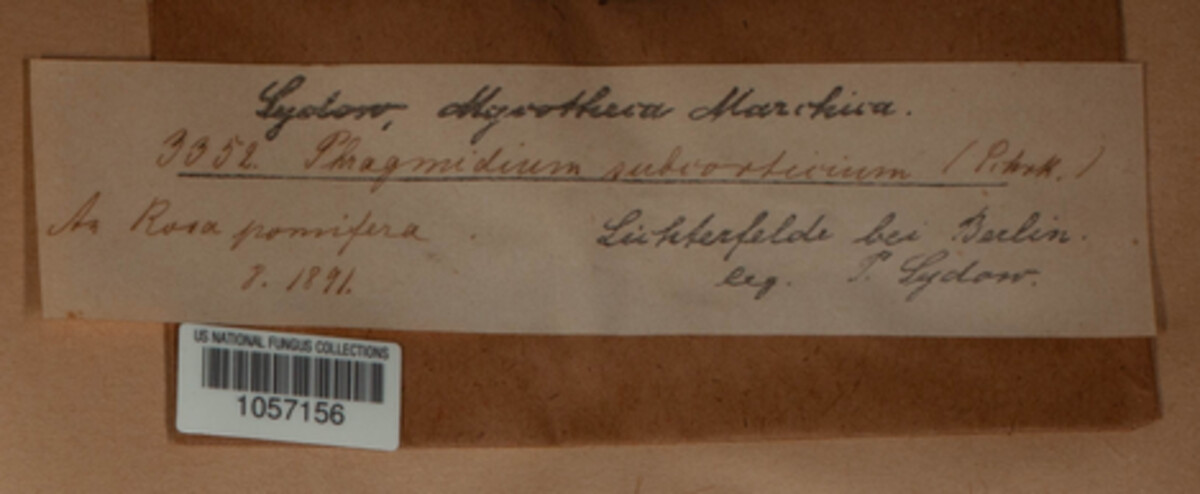 Sydow, Mycotheca Marchica.
3352. Phragmidium subcorticium (Schrk.)
An Rosa pomifera.
8. 1891.
Lichterfelde bei Berlin.
leg. P. Sydow.
US NATIONAL FUNGUS COLLECTIONS
1057156